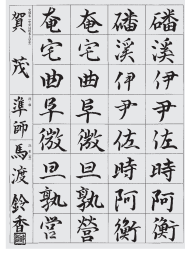 磻溪伊尹佐時阿衡
磻溪伊尹佐時阿衡
奄宅曲阜微旦孰營
奄宅曲阜微旦孰営
賀茂 準師 馬渡鈴香